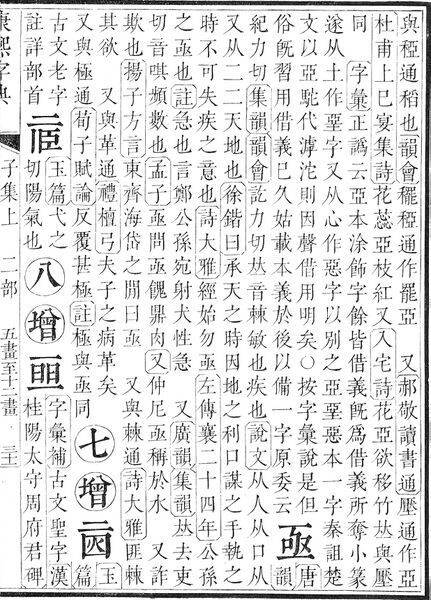 與稏通稻也韻會䆉稏通作罷亞　又郝敬讀書通壓通作亞
杜甫上巳宴集詩花蕊亞枝紅又入宅詩花亞欲移竹𠀤與壓
同　字彙正譌云亞本塗飾字餘皆借義旣爲借義所奪小篆
遂从土作堊字又从心作惡字以別之亞堊惡本一字秦詛楚
文以亞駝代滹沱則因聲借用明矣○按字彙說是但
俗旣習用借義已久姑載本義於後以備一字原委云
亟
唐
韻
紀力切集韻韻會訖力切𠀤音棘敏也疾也說文从人从口从
又从二二天地也徐鍇曰承天之時因地之利口謀之手執之
時不可失疾之意也詩大雅經始勿亟左傳襄二十四年公孫
之亟也註急也言鄭公孫宛射犬性急　又廣韻集韻𠀤去吏
切音唭頻數也孟子亟問亟餽鼎肉又仲尼亟稱於水　又詐
欺也揚子方言東齊海岱之閒曰亟　又與棘通詩大雅匪棘
其欲　又與革通禮檀弓夫子之病革矣
又與極通荀子賦論反覆甚極註極與亟同
七增
玉
篇
古文老字
註詳部首
玉篇弋之
切陽氣也
八增
字彙補古文聖字漢
桂陽太守周府君碑
康熙字典　子集上　二部　五畫至十一畫